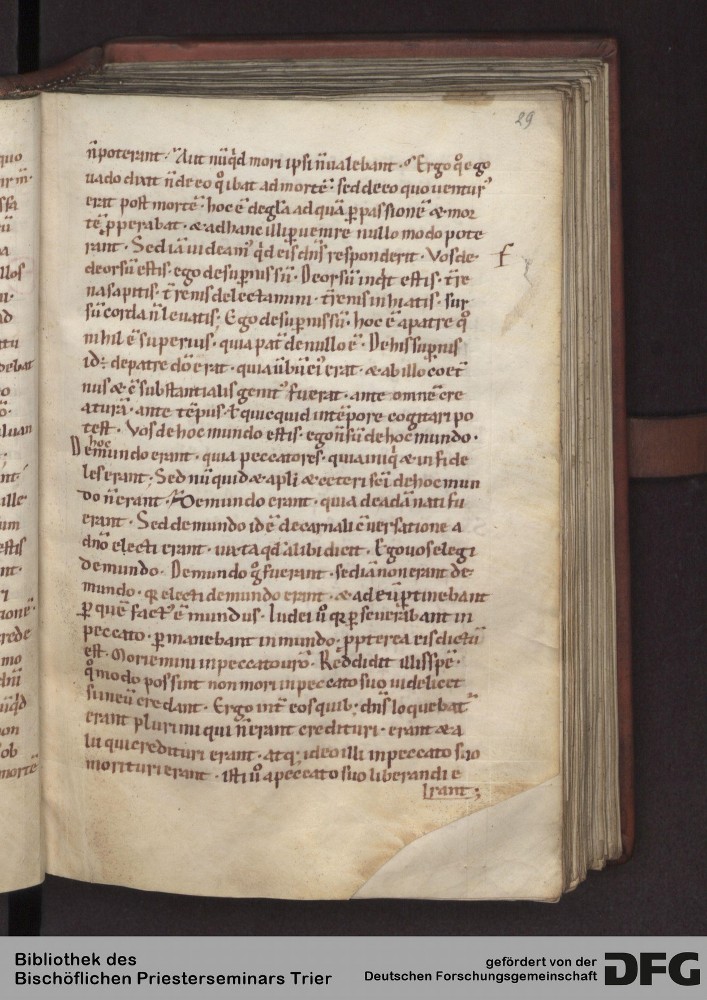 29
n̄poterant. Aut nūq̇d mori ipsi n̄ualebant. Ergo q̊ ego
uado dixit n̄ de eo q̊ ibat ad mortē. sed de eo quo uenturꝰ
erat post mortē. hoc ē de gl̄a ad quā ꝑ passionē & mor
tē ꝓperabat. & ad hanc illi ꝑuenire nullo modo pote
rant. Sed iā uideamꝰ q̇d eis dn̄s responderit. Vos de
deorsū estis. ego de supnis sū. Deorsū inq̇t estis. t̄re
na sapitis. t̄renis delectamini. t̄renis inhiatis. sur
sū corda n̄ leuatis. Ego de supnis sū. hoc ē a patre q̊
nihil ē superius. quia pat̄ de nullo ē. De his supnis
id: de patre dō erat. quia ūbū eiꝰ erat. & ab illo coet̄
nus & ē substantialis genitꝰ fuerat. ante omnē cre
aturā. ante tēpus. t̄ quicquid in tēpore cogitari po
test. Vos de hoc mundo estis. ego n̄ sū de hoc mundo.
De hoc mundo erant. quia peccatores. quia iniq̇ & infide
les erant. Sed nūquid & apl̄i & ceteri sc̄i de hoc mun
do n̄ erant. De mundo erant. quia de adā nati fu
erant. Sed de mundo id ē de carnali c̄uersatione a
dn̄o electi erant. iuxta qd̄ alibi dicit. Ego uos elegi
de mundo. De mundo g̊ fuerant. sed iā non erant de
mundo. q̇ electi de mundo erant. & ad eū ptinebant
ꝑ quē factꝰ ē mundus. Iudei ū q̇ ꝑseuerabant in
peccato. ꝑmanebant in mundo. ꝓpterea eis dictū
est. Moriemini in peccato uro. Reddidit illis spē.
q̊modo possint non mori in peccato suo uidelicet
si in eū credant. Ergo int̄ eos quib; dn̄s loquebatꝰ
erant plurimi qui n̄ erant credituri. erant & a
lii qui credituri erant. atq; ideo illi in peccato suo
morituri erant. isti ū a peccato suo liberandi e
rant;
Bibliothek des
Bischöflichen Priesterseminars Trier
gefördert von der
Deutschen Forschungsgemeinschaft
DFG